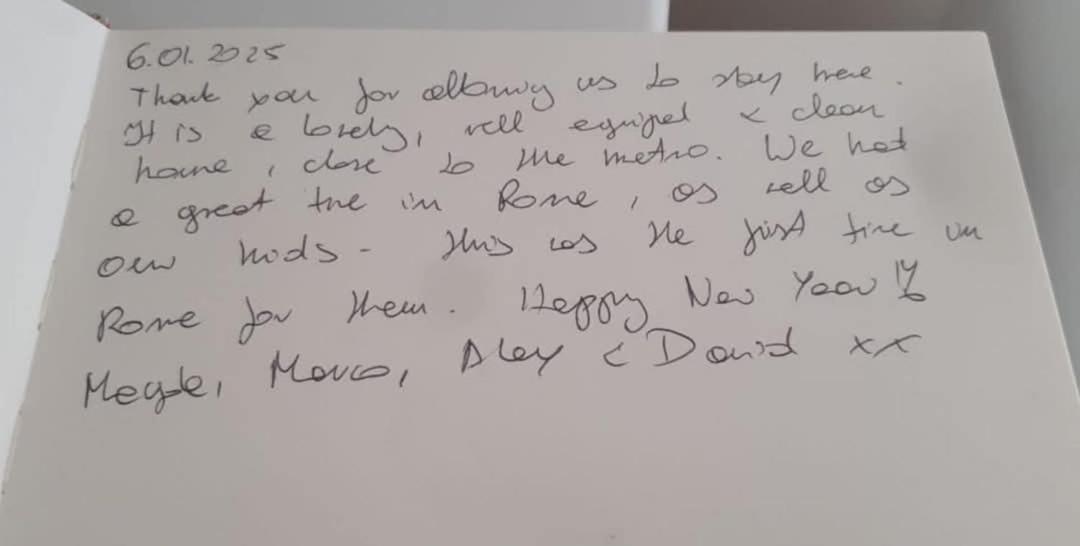 6.01.2025
Thank you for allowing us to stay here.
It is a lovely, well equiped & clean
home, close to the metro. We had
a great time in Rome, as well as
our kids - this was the first time in
Rome for them. Happy New Year!!
Marco, Alex & David xx